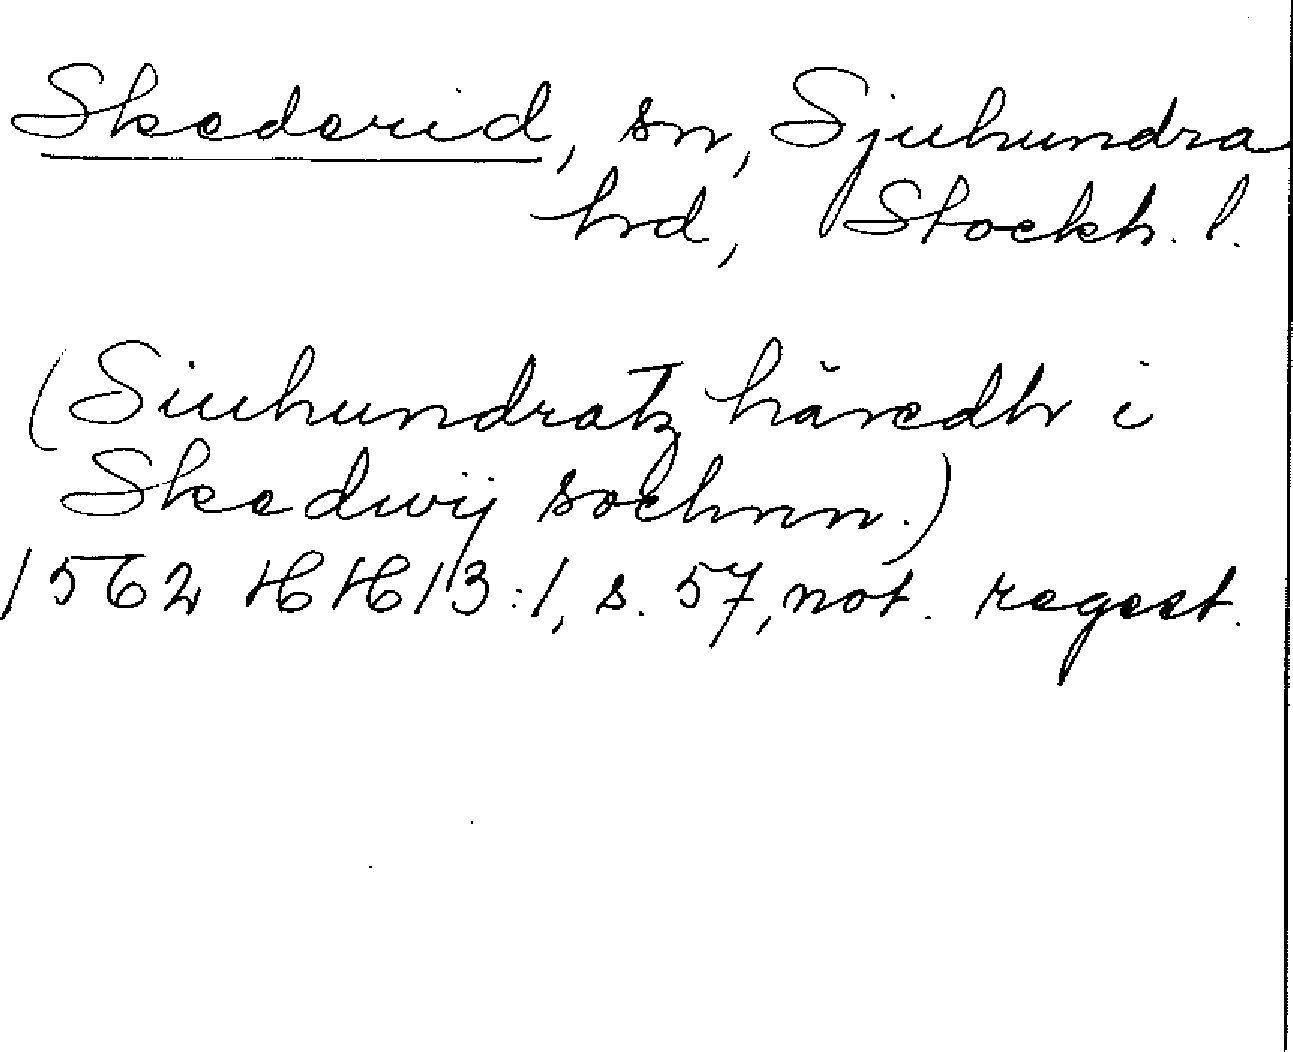 Skederid, sn, Sjuhundra
hrd, Stockh. l.
(Siuhundratz häredh i
Skedwij sochnn.)
1562 HH 13:1, s. 57, not. regest.